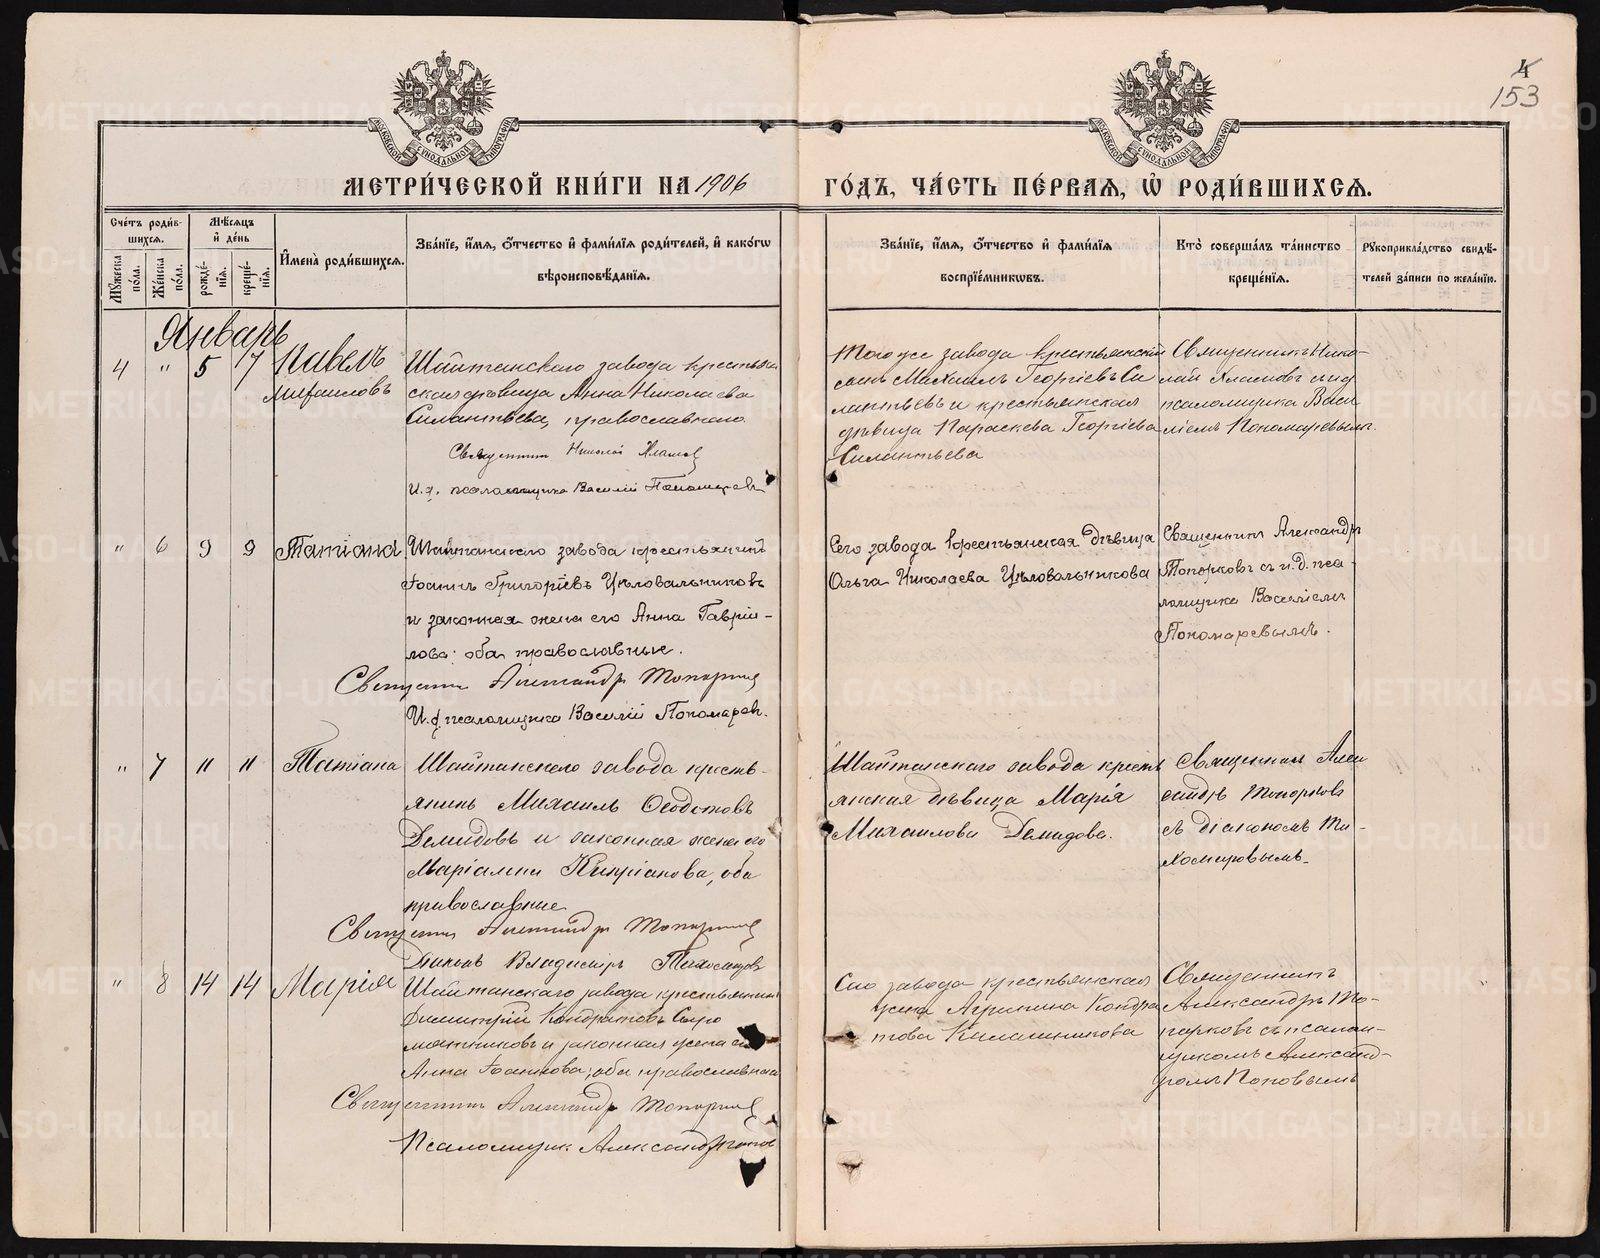 4
153
МОСКОВСКОЙ СѴНОДАЛЬНОЙ ТИПОГРАФІИ
МОСКОВСКОЙ СѴНОДАЛЬНОЙ ТИПОГРАФІИ
МЕТРИ́ЧЕСКОЙ КНИ́ГИ НА 1906
ГО́ДЪ, ЧА́СТЬ ПЕ́РВАѦ, Ѡ҆ РОДИ́ВШИХСѦ.
Сче́тъ роди́в-
шихсѧ.
Мꙋ́жеска по́ла.
Же́нска по́ла.
Мѣ́сѧцъ и҆ де́нь
рожде́-
нїѧ.
креще́-
нїѧ.
И҆мена̀ роди́вшихсѧ.
Зва́нїе, и҆́мѧ, ѻ҆́тчество и҆ фами́лїѧ роди́телей, и҆ како́гѡ
вѣроисповѣ́данїѧ.
Зва́нїе, и҆́мѧ, ѻ҆́тчество и҆ фами́лїѧ
воспрїе́мникѡвъ.
Кто̀ соверша́лъ та́инство
креще́нїѧ.
Рꙋкоприкла́дство свидѣ́-
телей за́писи по жела́нїю.
Январь
4 " 5 7 Павелъ
Михаиловъ
Шайтанскаго завода крестьян
ская дѣвица Анна Николаева
Силантьева, православнаго
Священникъ Николай Хламов
И. д. псаломщика Василій Пономаревъ
Того же завода крестьянскій
сынъ Михаилъ Георгіевъ Си
лантьевъ и крестьянская
дѣвица Параскева Георгіева
Силантьева
Священникъ Нико-
лай Хламовъ с и д
псаломщика Васи
ліемъ Пономаревымъ.
" 6 9 9 Татіана
Шайтанскаго завода крестьянинъ
Іоаннъ Григоріевъ Цѣловальниковъ
и законная жена его Анна Гавріи-
лова: оба православные.
Священникъ Александръ Топорковъ
И. д. псаломщика Василій Пономаревъ.
Сего завода крестьянская дѣвица
Ольга Николаева Цѣловальникова
Священникъ Александръ
Топорковъ съ и. д. пса-
ломщика Василіемъ
Пономаревымъ.
" 7 11 11 Татіана
Шайтанскаго завода кресть-
янинъ Михаилъ Ѳеодотовъ
Демидовъ и законная жена его
Маріамна Кипріанова, оба
православные
Священникъ Александръ Топорковъ
Діаконъ Владиміръ Тихомировъ
Шайтанскаго завода кресть
янская дѣвица Марія
Михаилова Демидова.
Священникъ Алек
сандръ Топорковъ
съ діакономъ Ти-
хомировымъ
" 8 14 14 Марія
Шайтанскаго завода крестьянинъ
Димитрій Кондратовъ Сыро
мятниковъ и законная жена его
Анна Іоаннова; оба православные
Священникъ Александръ Топорковъ
Псаломщикъ Александръ Поповъ
Сего завода крестьянская
жена Агрипина Кондра
това Калашникова
Священникъ
Александръ То-
порковъ съ псалом-
щикомъ Александ-
ромъ Поповымъ
METRIKI.GASO-URAL.RU